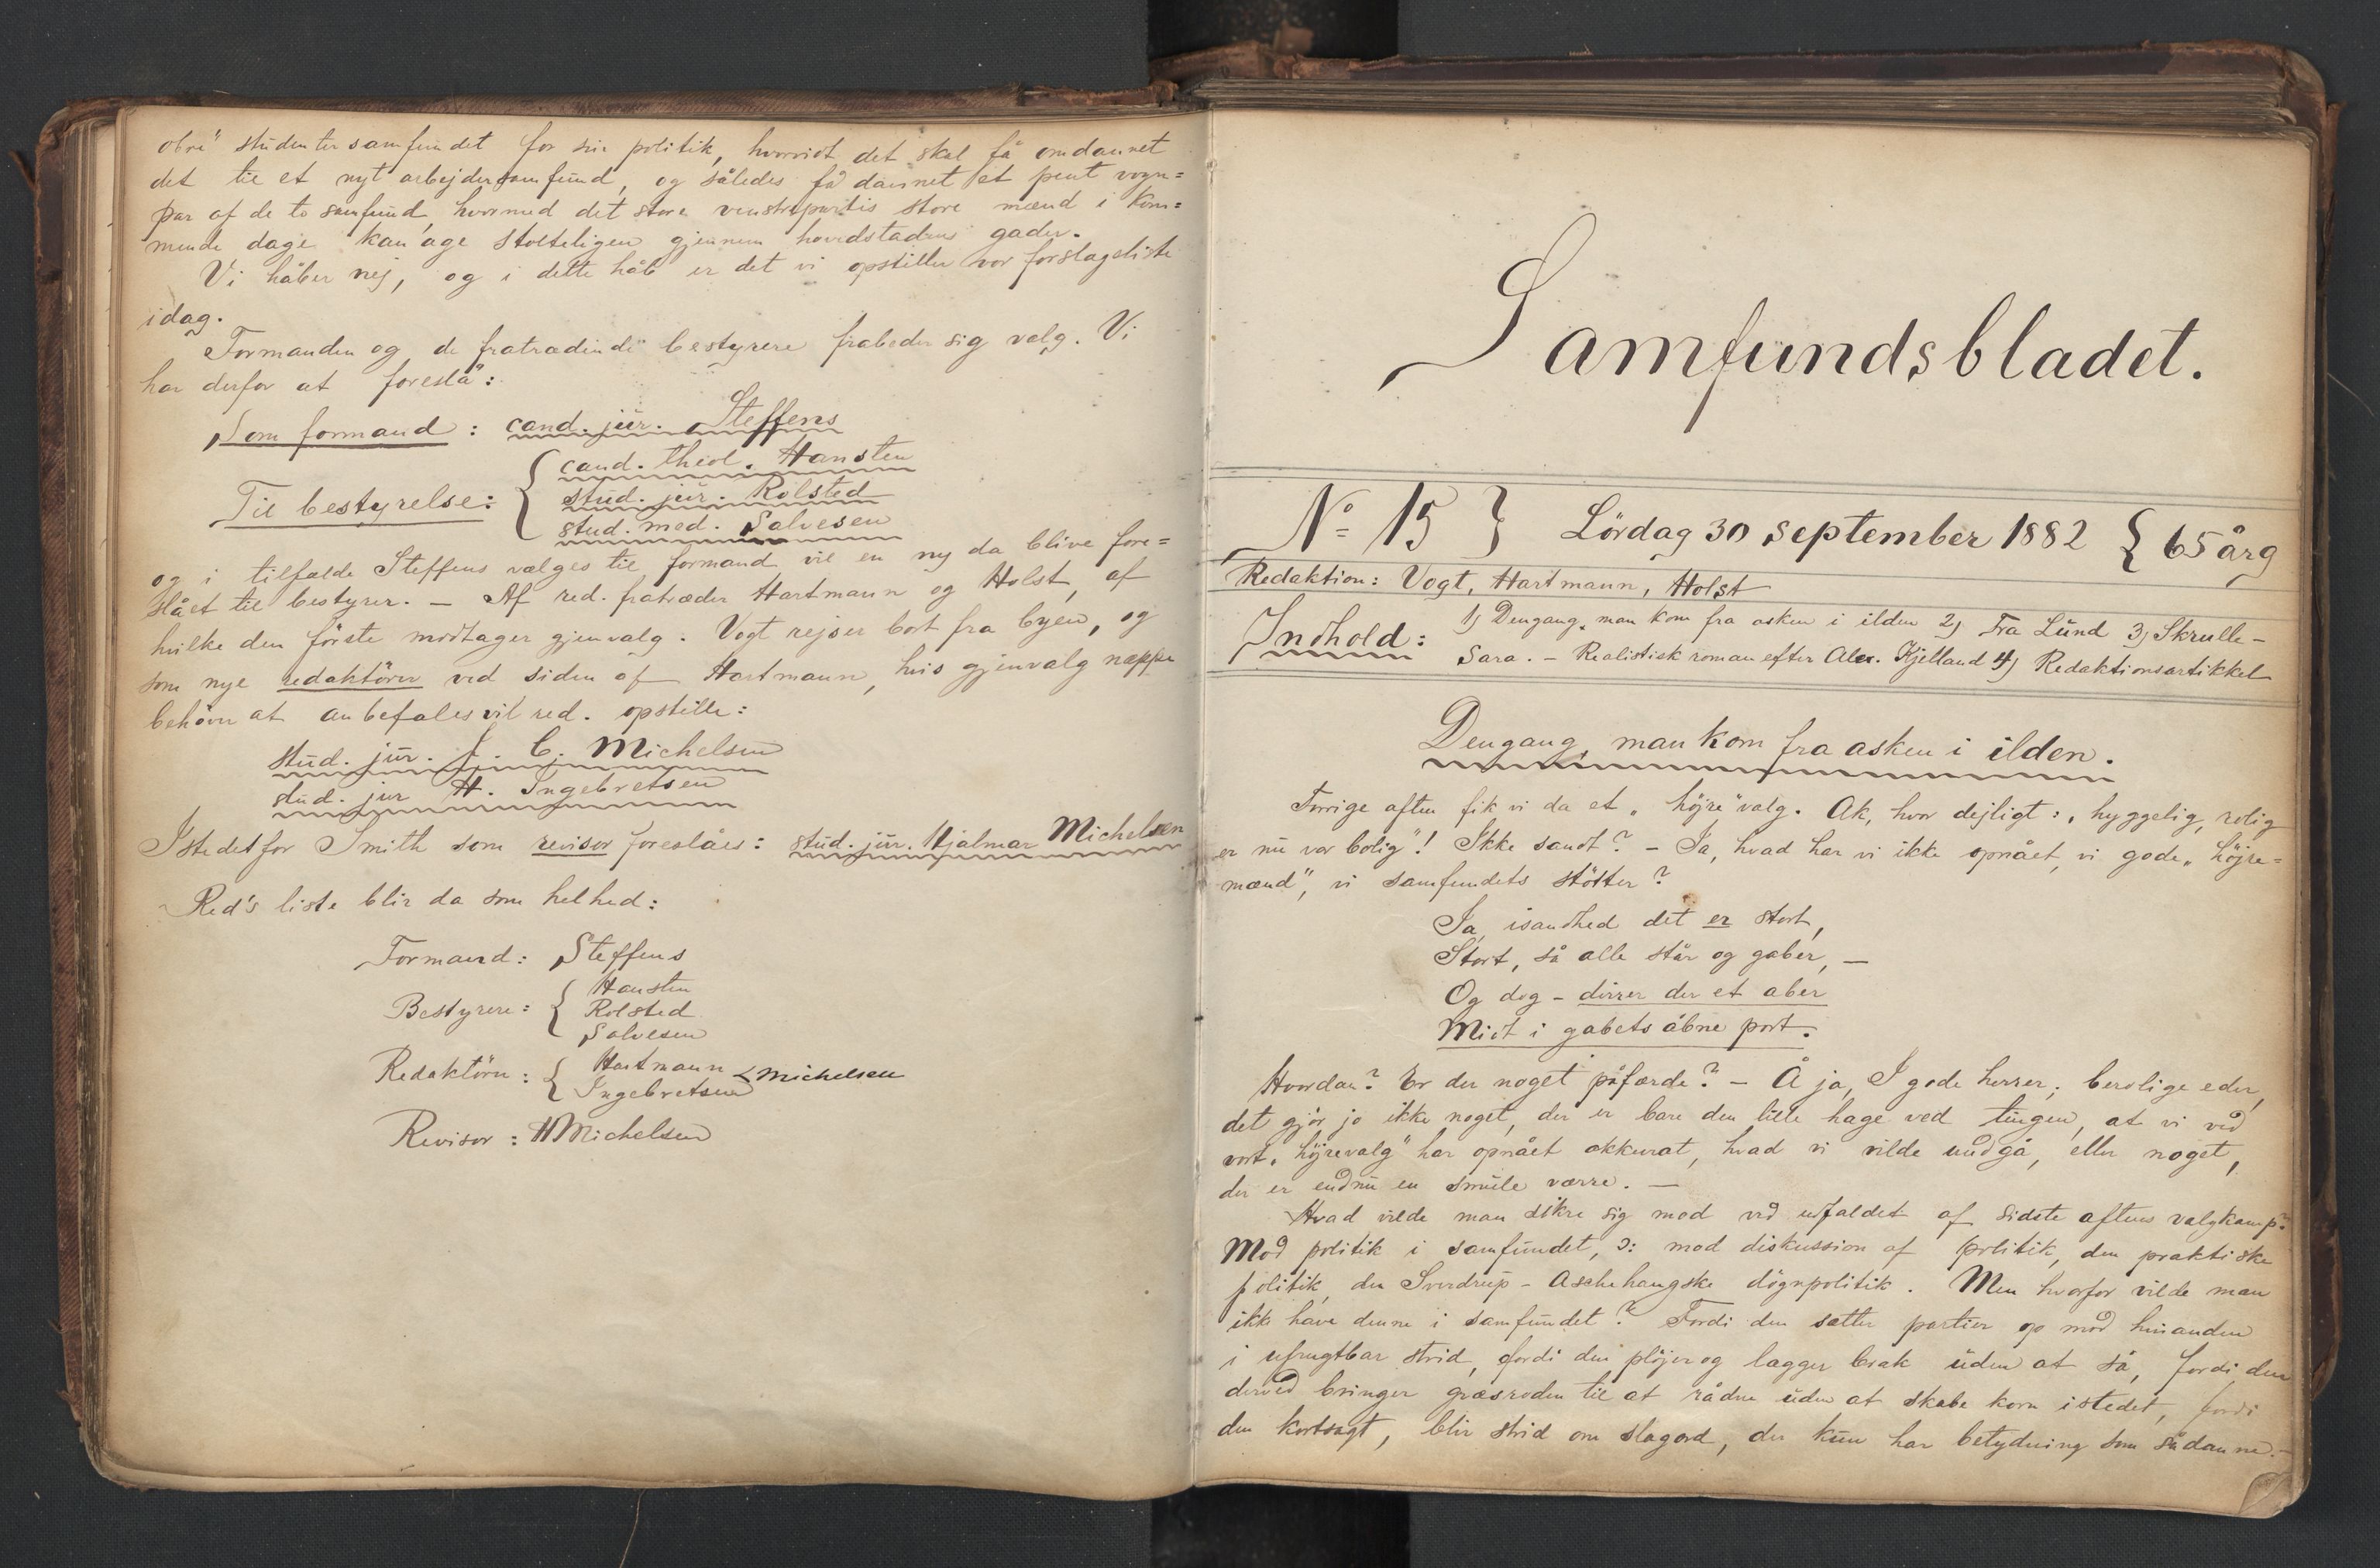 studentersamfundet for sin politik, hvorvidt det skal få omdannet
det til et nyt arbejdersamfund, og således få dannet et pent vogn=
par af de to samfund, hvormed det store venstrepartis store mænd i kom=
mende dage kan age stolteligen gjennem hovedstadens gader.
Vi håber nej, og i dette håb er det vi opstiller vor forslagsliste
idag.
Formanden og de fratrædende bestyrere frabeder sig valg. Vi
har derfor at foreslå:
Som formand: cand. jur. Steffens
Til bestyrelse: { cand. theol. Hansten
stud. jur. Rolsted
stud. med. Salvesen
og i tilfælde Steffens vælges til formand vil en ny da blive fore=
slået til bestyrer. — Af red. fratræder Hartmann og Holst, af
hvilke den förste modtager gjenvalg. Vogt rejser bort fra byen, og
som nye redaktörer ved siden af Hartmann, hvis gjenvalg næppe
behöver at anbefales vil red. opstille:
stud. jur. J. C. Michelsen
stud. jur H. Ingebretsen
Istedetfor Smith som revisor foreslåes: stud. jur. Hjalmar Michelsen
Red's liste blir da som helhed:
Formand: Steffens
Bestyrere: { Hansten
Rolsted
Salvesen
Redaktörer: { Hartmann < Michelsen
Ingebretsen
Revisor: H Michelsen
Samfundsbladet.
No 15 } Lördag 30 september 1882 { 65 årg
Redaktion: Vogt, Hartmann, Holst
Indhold: 1) Dengang, man kom fra asken i ilden 2) Fra Lund 3) Skrulle-
Sara. — Realistisk roman efter Alex. Kjelland 4) Redaktionsartikkel
Dengang, man kom fra asken i ilden.
Forrige aften fik vi da et „höjre"valg. Ak, hvor dejligt: „hyggelig, rolig
er nu vor bolig"! Ikke sandt? — Ja, hvad har vi ikke opnået, vi gode „höjre=
mænd", vi samfundets stötter?
Ja, isandhed det er stort,
Stort, så alle står og gaber, —
Og dog — dirrer der et aber
Midt i gabets åbne port.
Hvordan? Er der noget påfærde? — Å ja, I gode herrer; berolige eder,
det gjör jo ikke noget, der er bare den lille hage ved tingen, at vi ved
vort „höjrevalg" har opnået akkurat, hvad vi vilde undgå, eller noget,
der er endnu en smule værre. —
Hvad vilde man sikre sig mod ved udfaldet af sidste aftens valgkamp?
Mod politik i samfundet, ɔ: mod diskussion af politik, den praktiske
politik, den Sverdrup-Aschehougske dögnpolitik. Men hvorfor vilde man
ikke have denne i samfundet? Fordi den sætter partier op mod hinanden
i ufrugtbar strid, fordi den plöjer og lægger brak uden at så, fordi den
derved bringer græsroden til at rådne uden at skabe korn istedet, fordi
den kortsagt, blir strid om slagord, der kun har betydning som sådanne.-